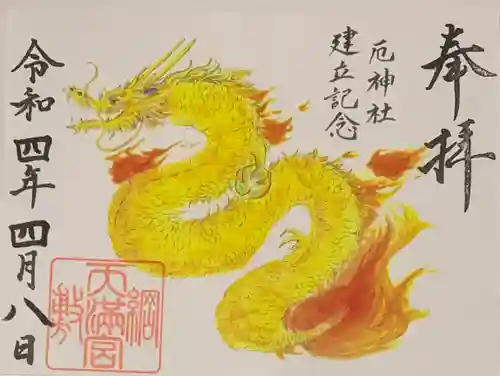 奉拝
厄神社
建立記念
令和四年四月八日
綱
天満宮
敷